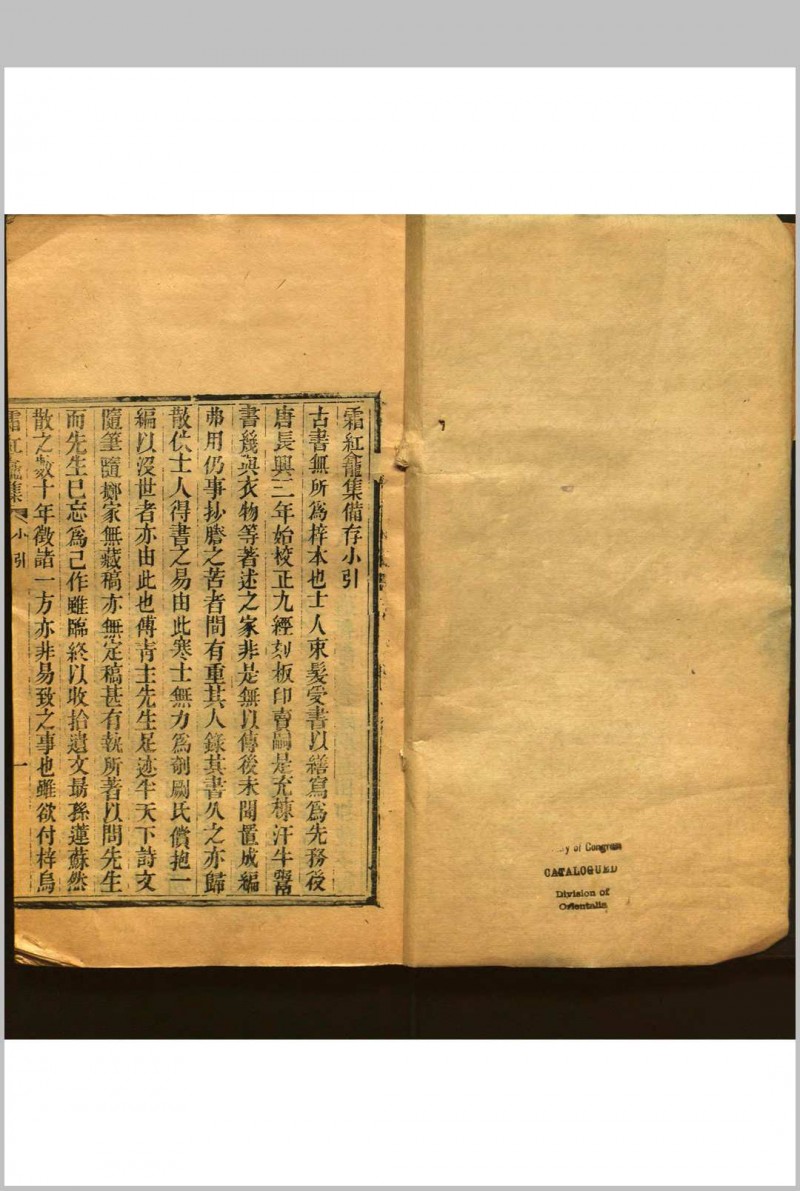 霜紅龕集備存小引
古書無所爲梓本也士人束髮受書以繕寫爲先務後
唐長興三年始校正九經刻板印賣嗣是充棟汗牛鬻
書幾與衣物等著述之家非是無以傳後未聞置成編
弗用仍事抄謄之苦者間有重其人錄其書久之亦歸
散佚士人得書之易由此寒士無力爲剞劂氏償抱一
編以沒世者亦由此也傅青主先生足迹半天下詩文
隨筆隨擲家無藏稿亦無定稿甚有執所著以問先生
而先生已忘爲己作雖臨終以收拾遺文勗孫蓮蘇然
散之數十年徵諸一方亦非易致之事也雖欲付梓烏
霜紅龕集 小引 一
y of Congress
CATALOGUED
Division of
Orientalia